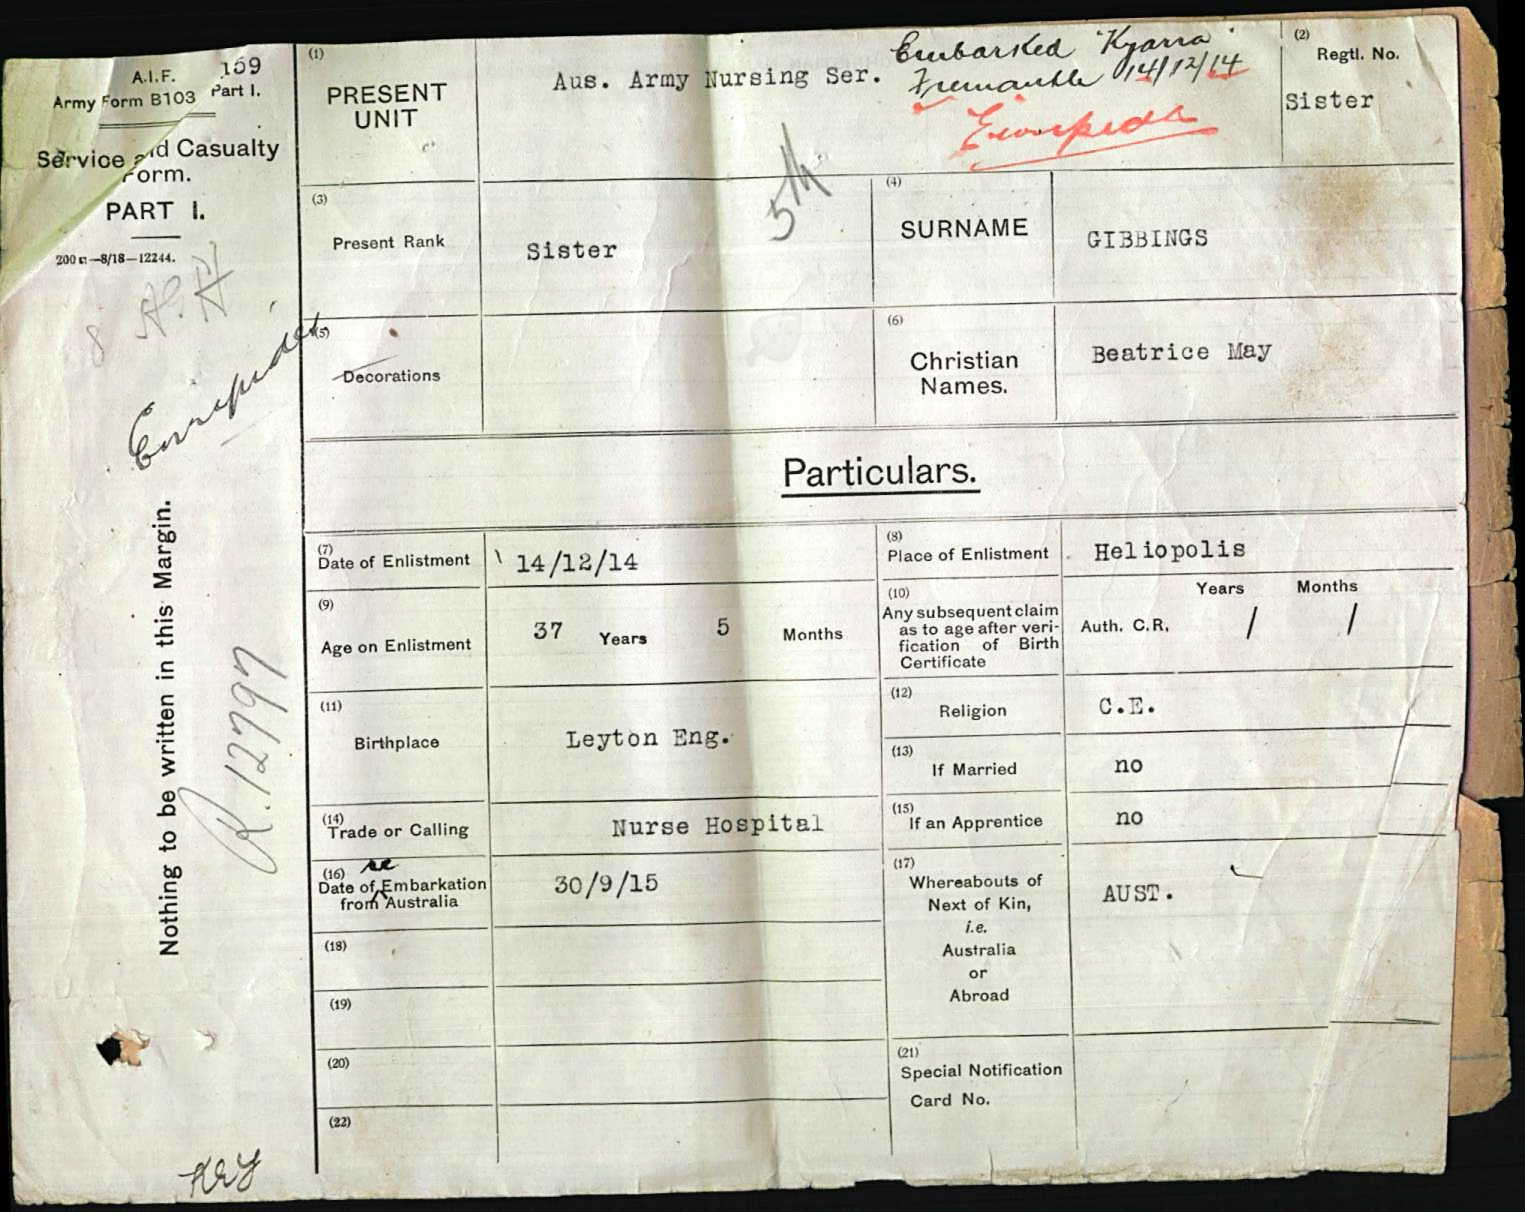 A.I.F. 159
Army Form B103 Part I.
Service and Casualty
Form.
PART I.
200 M—8/18—12244.
8 H.H
Euripides
Nothing to be written in this Margin.
K.12797
KRY
(1)
PRESENT
UNIT
Aus. Army Nursing Ser.
Embarked "Kyarra"
Fremantle 14/12/14
Euripides
(2)
Regtl. No.
Sister
(3)
Present Rank
Sister
5th
(4)
SURNAME
GIBBINGS
(5)
Decorations
(6)
Christian
Names.
Beatrice May
Particulars.
(7)
Date of Enlistment
14/12/14
(8)
Place of Enlistment
Heliopolis
(9)
Age on Enlistment
37 Years 5 Months
(10)
Any subsequent claim
as to age after veri-
fication of Birth
Certificate
Years Months
Auth. C.R, / /
(11)
Birthplace
Leyton Eng.
(12)
Religion
C.E.
(13)
If Married
no
(14)
Trade or Calling
Nurse Hospital
(15)
If an Apprentice
no
(16) re
Date of Embarkation
from Australia
30/9/15
(17)
Whereabouts of
Next of Kin,
i.e.
Australia
or
Abroad
AUST.
(18)
(19)
(20)
(21)
Special Notification
Card No.
(22)